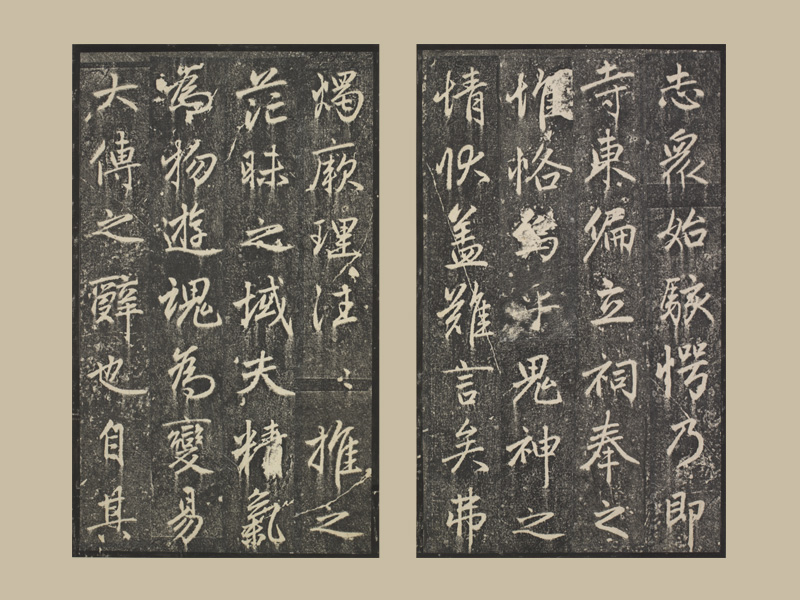 志眾始駭愕乃即
寺東偏立祠奉之
惟恪焉乎鬼神之
情狀蓋難言矣弗
燭厥理注〻推之
茫昧之域夫精氣
為物遊魂為變易
大傳之辭也自其